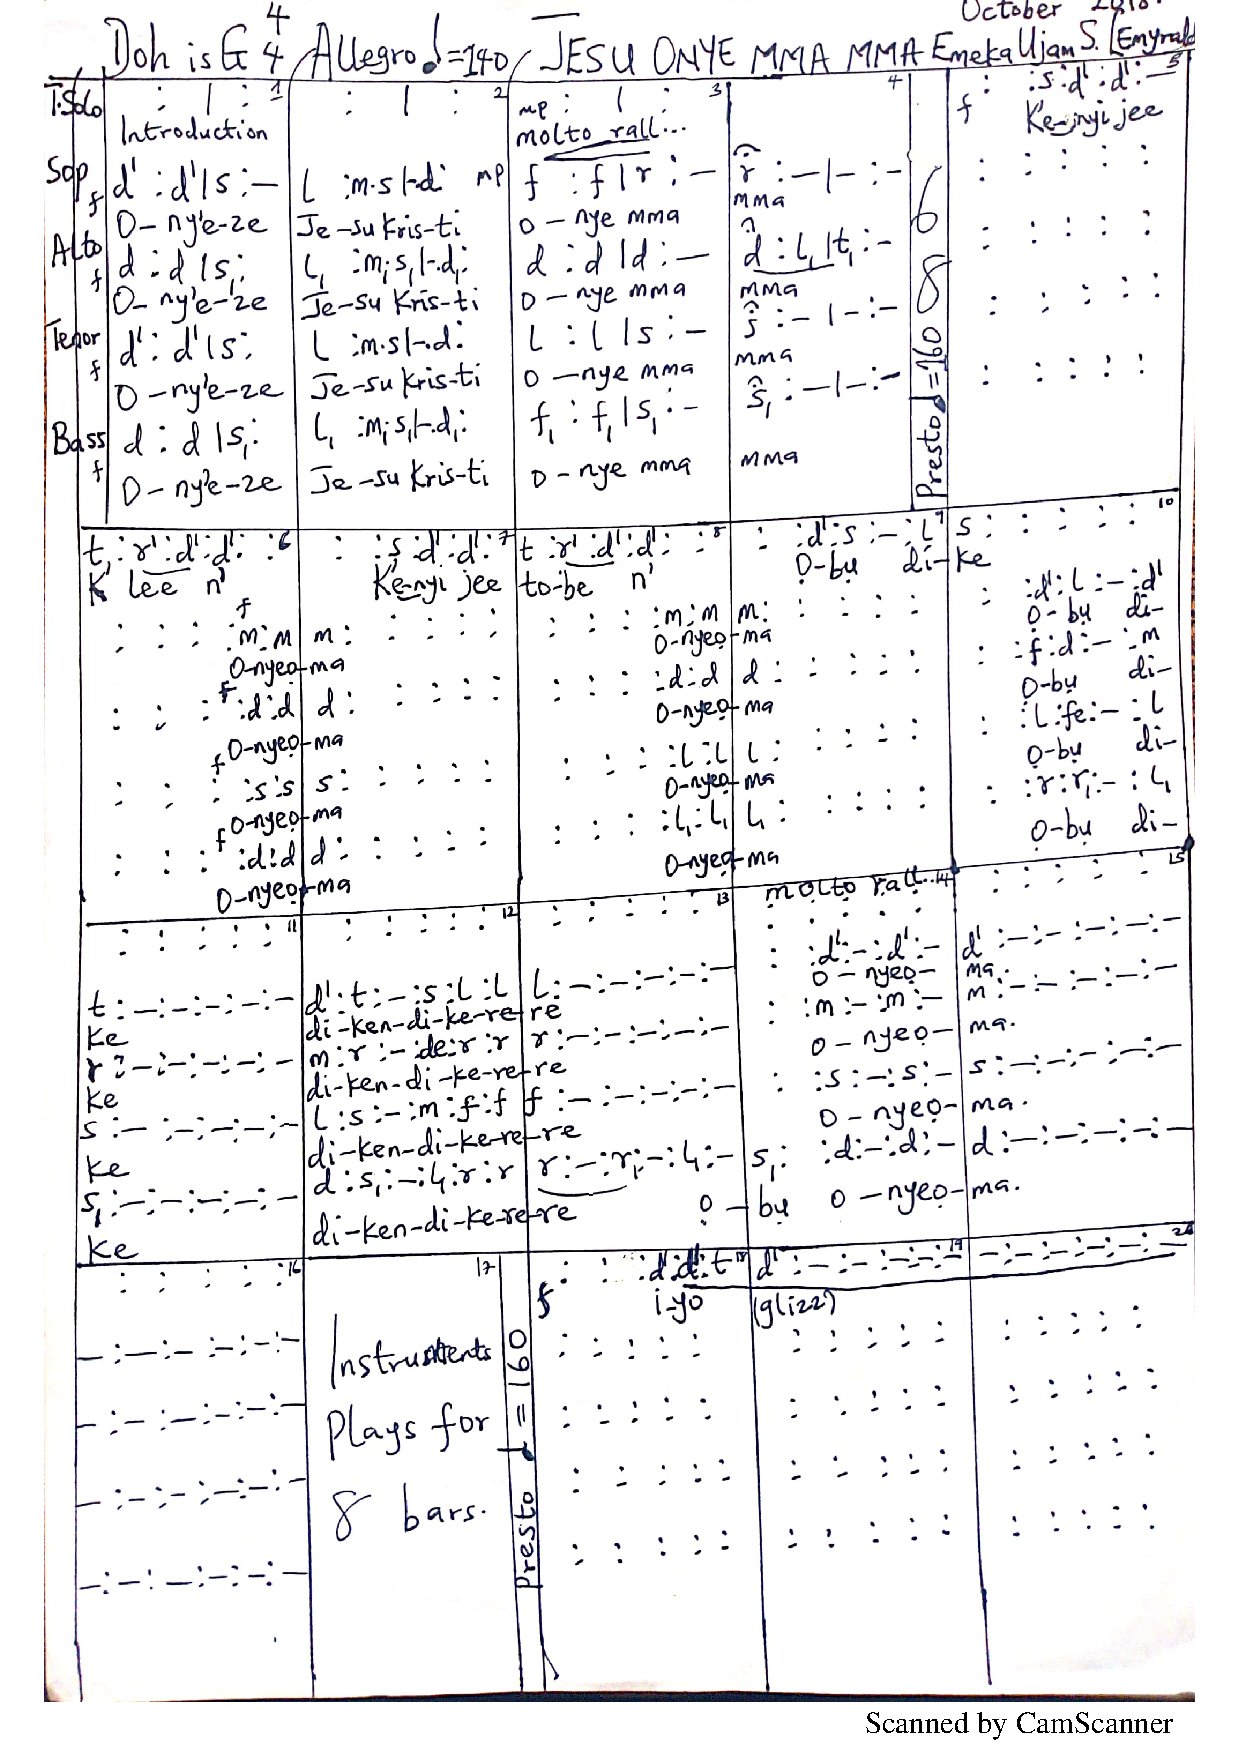 October 2018.
Doh is G 4/4 / Allegro ♩=140 / JESU ONYE MMA MMA Emeka Ujam S. [Emyrald
T.Solo : | : 1 : | : 2 mp : | : 3 4 f : :s :d' :d' :— 5
Introduction molto rall... Ke-nyi jee
Sop f d' :d' | s :— l :m.s |-.d: mp f :f | r :— r :— | — :—
O-ny'e-ze Je-su Kris-ti O-nye mma mma
Alto f d :d | s₁: l₁ :m₁.s₁ |-.d₁: d :d | d :— d :l₁ | t₁ :-
O-ny'e-ze Je-su Kris-ti O-nye mma mma
Tenor f d' :d' | s: l :m.s |-.d: l :l | s :— s :— | — :—
O-ny'e-ze Je-su Kris-ti O-nye mma mma
Bass f d :d | s₁: l₁ :m₁.s₁ |-.d₁: f₁ :f₁ | s₁ :- s₁ :— | — :—
O-ny'e-ze Je-su Kris-ti O-nye mma mma
Presto ♩=160 6/8
t₁ :r' :d' :d' : :6 : :s :d' :d' :7 t :r' :d' :d' : :8 : :d' :s :— :l 9 s : : : : : 10
K' lee n' Ke-nyi jee to-be n' O-bụ di-ke
f :m :m m : :m :m m : :d' :l :— :d'
O-nyeọ-ma O-nyeọ-ma O-bụ di-
f :d :d d : :d :d d : :f :d :— :m
O-nyeọ-ma O-nyeọ-ma O-bụ di-
f :s :s s : :l :l l : :l :fe :— :l
O-nyeọ-ma O-nyeọ-ma O-bụ di-
f :d :d d : :l₁ :l₁ l₁ : :r :r₁ :— :l₁
O-nyeọ-ma O-nyeọ-ma O-bụ di-
11 12 13 molto rall... 14 15
t :— :— :— :— :— d' :t :— :s :l :l l :— :— :— :— :— :d' :— :d' :— d' :— :— :— :— :—
Ke di-ken-di-ke-re-re O-nyeọ-ma
r :— :— :— :— :— m :r :— :de :r :r r :— :— :— :— :— :m :— :m :— m :— :— :— :— :—
Ke di-ken-di-ke-re-re O-nyeọ-ma.
s :— :— :— :— :— l :s :— :m :f :f f :— :— :— :— :— :s :— :s :— s :— :— :— :— :—
Ke di-ken-di-ke-re-re O-nyeọ-ma.
s₁ :— :— :— :— :— d :s₁ :— :l₁ :r :r r :— :r₁ :— :l₁ :— s₁ : :d :— :d :— d :— :— :— :— :—
Ke di-ken-di-ke-re-re O-bụ O-nyeọ-ma.
16 17 f : : :d' :d' :t 18 d' :— :— :— :— :— 19 — :— :— :— :— :— 20
i-yo (glizz)
— :— :— :— :— :—
— :— :— :— :— :—
— :— :— :— :— :—
— :— :— :— :— :—
Instruments
Plays for
8 bars.
Presto ♩=160
Scanned by CamScanner